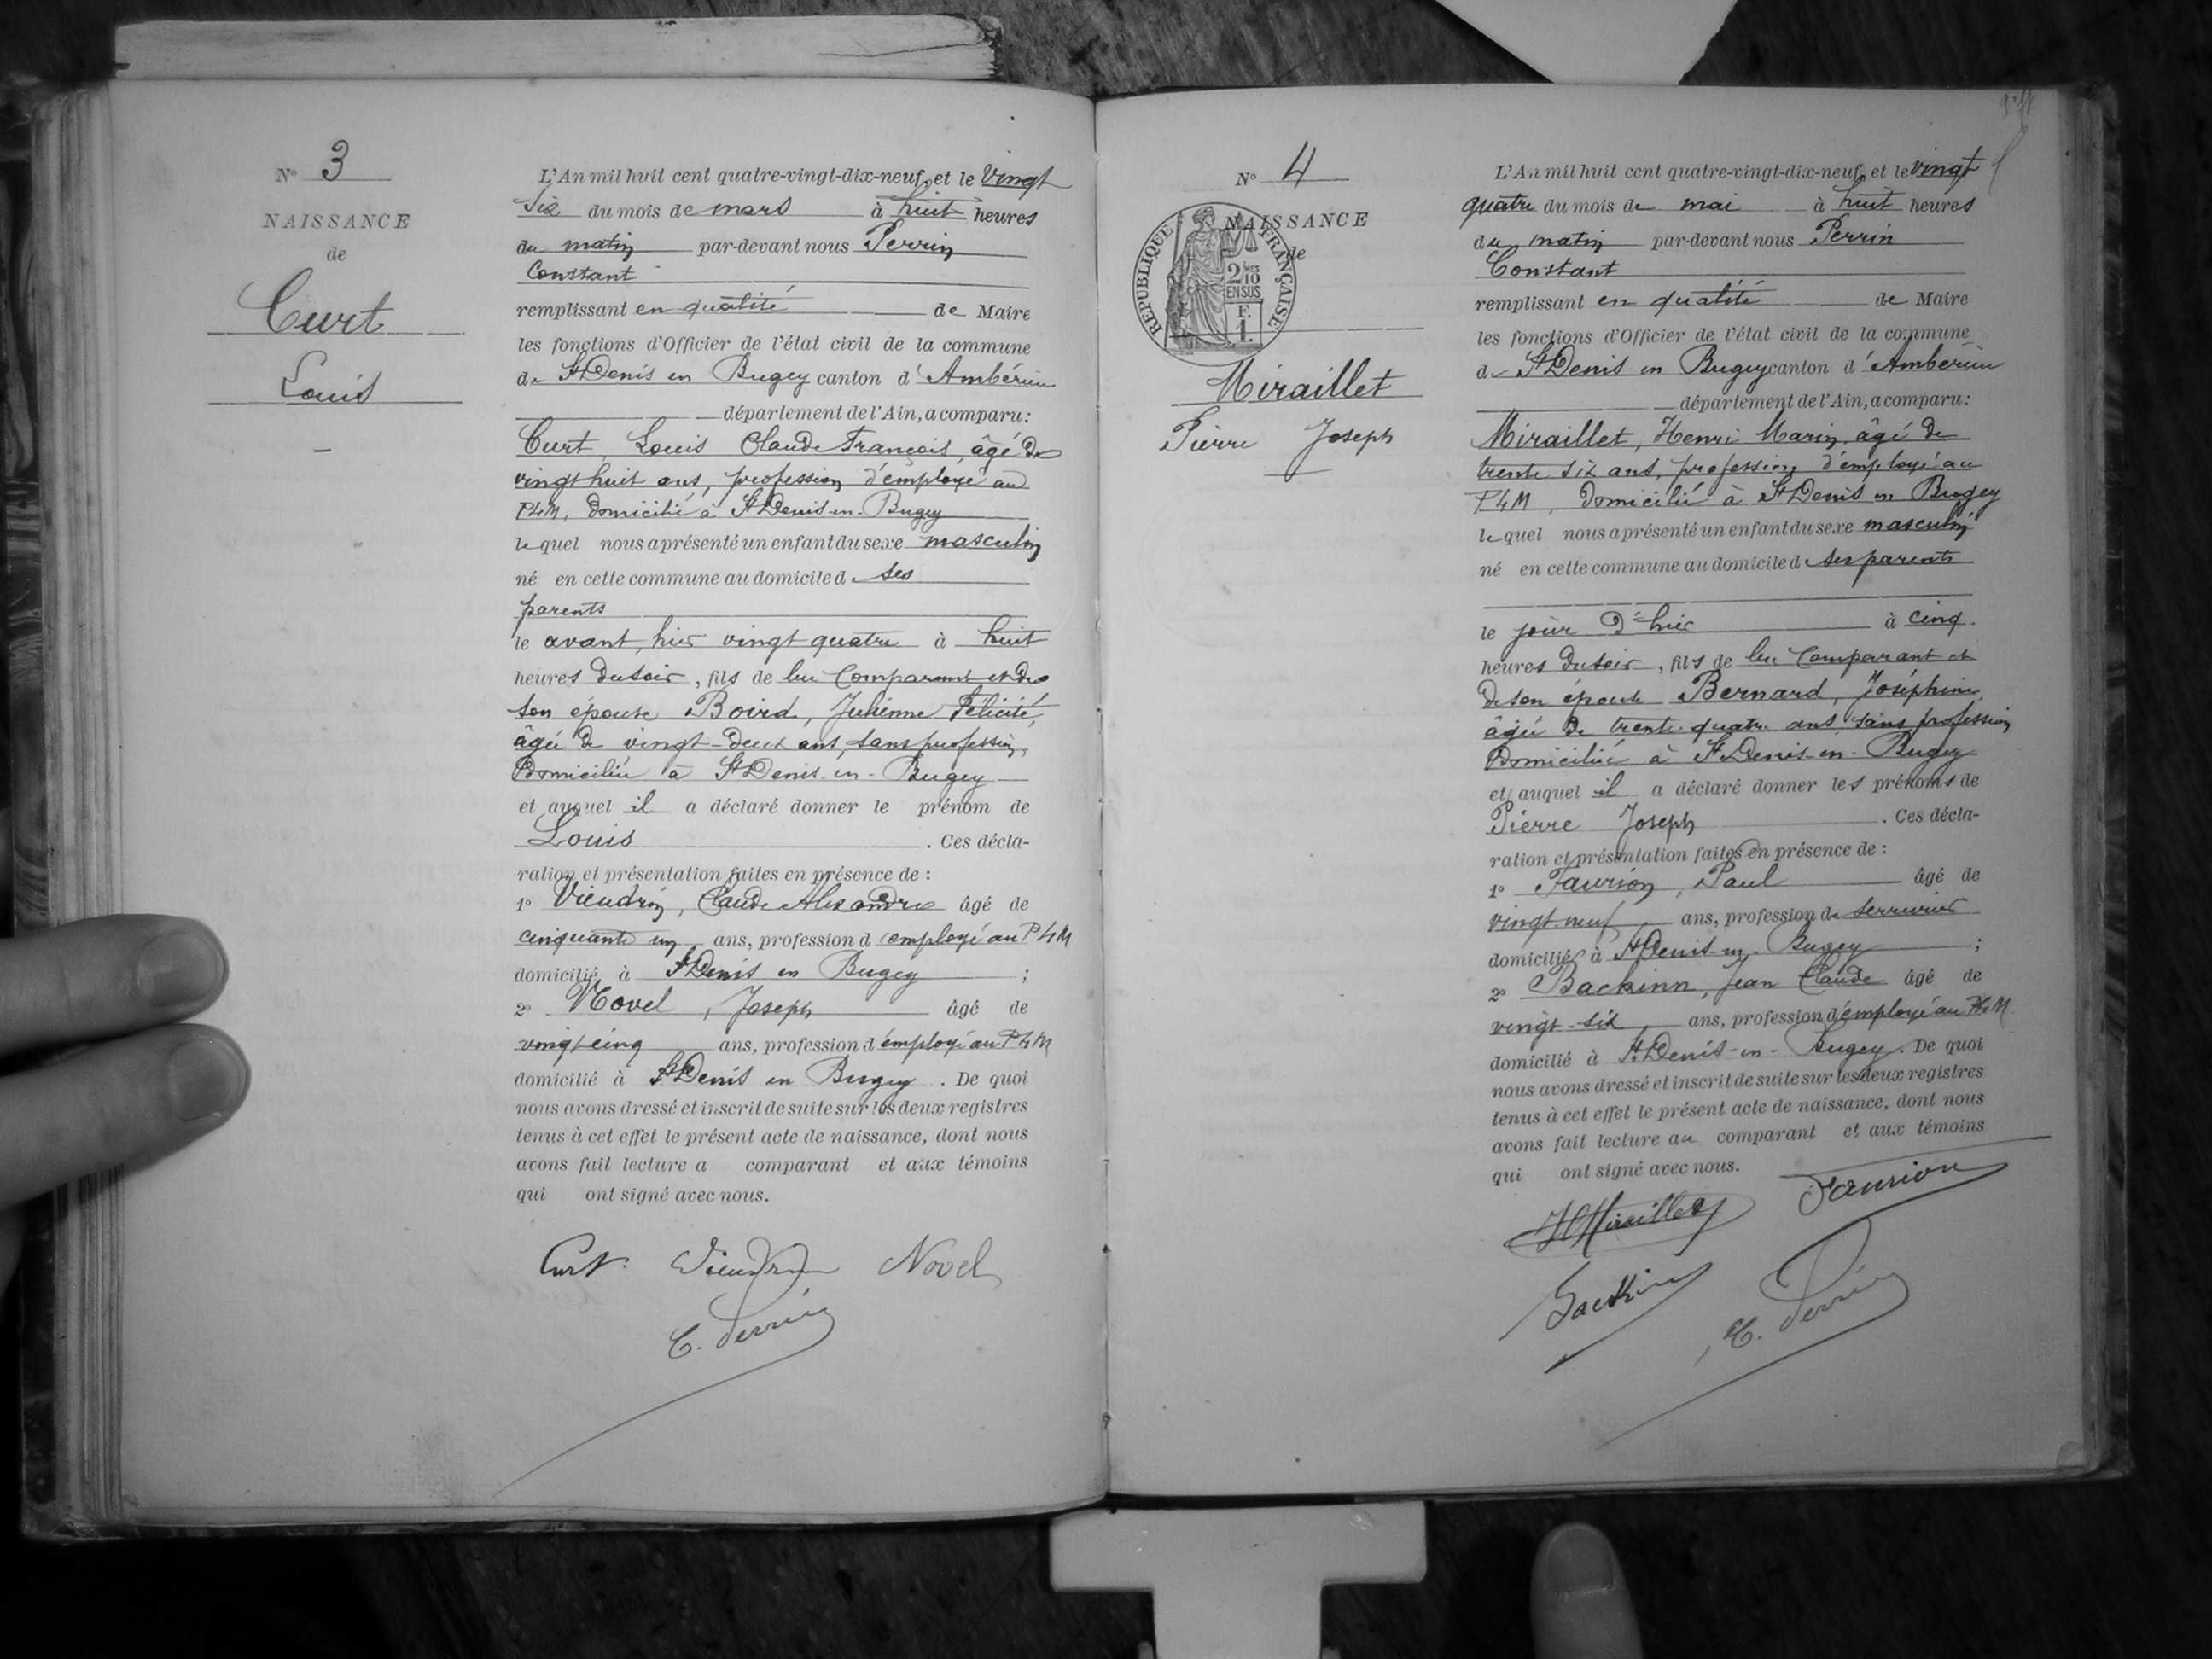 N° 3
NAISSANCE
de
Curt
Louis
L'An mil huit cent quatre-vingt-dix-neuf, et le vingt
six du mois de mars à huit heures
du matin par-devant nous Perrin
Constant
remplissant en qualité de Maire
les fonctions d'Officier de l'état civil de la commune
de St Denis en Bugey canton d'Ambérieu
département de l'Ain, a comparu:
Curt, Louis Claude François, âgé de
vingt huit ans, profession d'employé au
PLM, domicilié à St Denis-en-Bugey
lequel nous a présenté un enfant du sexe masculin
né en cette commune au domicile d ses
parents
le avant, hier vingt quatre à huit
heures du soir, fils de lui Comparant et de
son épouse Boird, Julienne Félicité,
âgée de vingt-deux ans, sans profession,
domiciliée à St Denis-en-Bugey
et auquel il a déclaré donner le prénom de
Louis. Ces décla-
ration et présentation faites en présence de :
1° Vieudrin, Claude Alexandre âgé de
cinquante un ans, profession d'employé au PLM
domicilié à St Denis en Bugey ;
2° Novel, Joseph âgé de
vingt cinq ans, profession d'employé au PLM
domicilié à St Denis en Bugey. De quoi
nous avons dressé et inscrit de suite sur les deux registres
tenus à cet effet le présent acte de naissance, dont nous
avons fait lecture a comparant et aux témoins
qui ont signé avec nous.
Curt Vieudrin Novel
C. Perrin
N° 4
NAISSANCE
de
RÉPUBLIQUE FRANÇAISE
2/10 MES
EN SUS
F.
1.
Miraillet
Pierre Joseph
L'An mil huit cent quatre-vingt-dix-neuf, et le vingt
quatre du mois de mai à huit heures
du matin par-devant nous Perrin
Constant
remplissant en qualité de Maire
les fonctions d'Officier de l'état civil de la commune
de St Denis en Bugey canton d'Ambérieu
département de l'Ain, a comparu:
Miraillet, Henri Marin, âgé de
trente six ans, profession d'employé au
PLM, domicilié à St Denis en Bugey
lequel nous a présenté un enfant du sexe masculin
né en cette commune au domicile d ses parents
le jour d'hier à cinq
heures du soir, fils de lui Comparant et
de son épouse Bernard, Joséphine,
âgée de trente-quatre ans sans profession
domiciliée à St Denis-en-Bugey
et auquel il a déclaré donner les prénoms de
Pierre Joseph. Ces décla-
ration et présentation faites en présence de :
1° Faurion, Paul âgé de
vingt neuf ans, profession de serrurier
domicilié à St Denis-en-Bugey ;
2° Backinn, Jean Claude âgé de
vingt-six ans, profession d'employé au PLM
domicilié à St Denis-en-Bugey. De quoi
nous avons dressé et inscrit de suite sur les deux registres
tenus à cet effet le présent acte de naissance, dont nous
avons fait lecture au comparant et aux témoins
qui ont signé avec nous.
HMiraillet Faurion
Backin C. Perrin